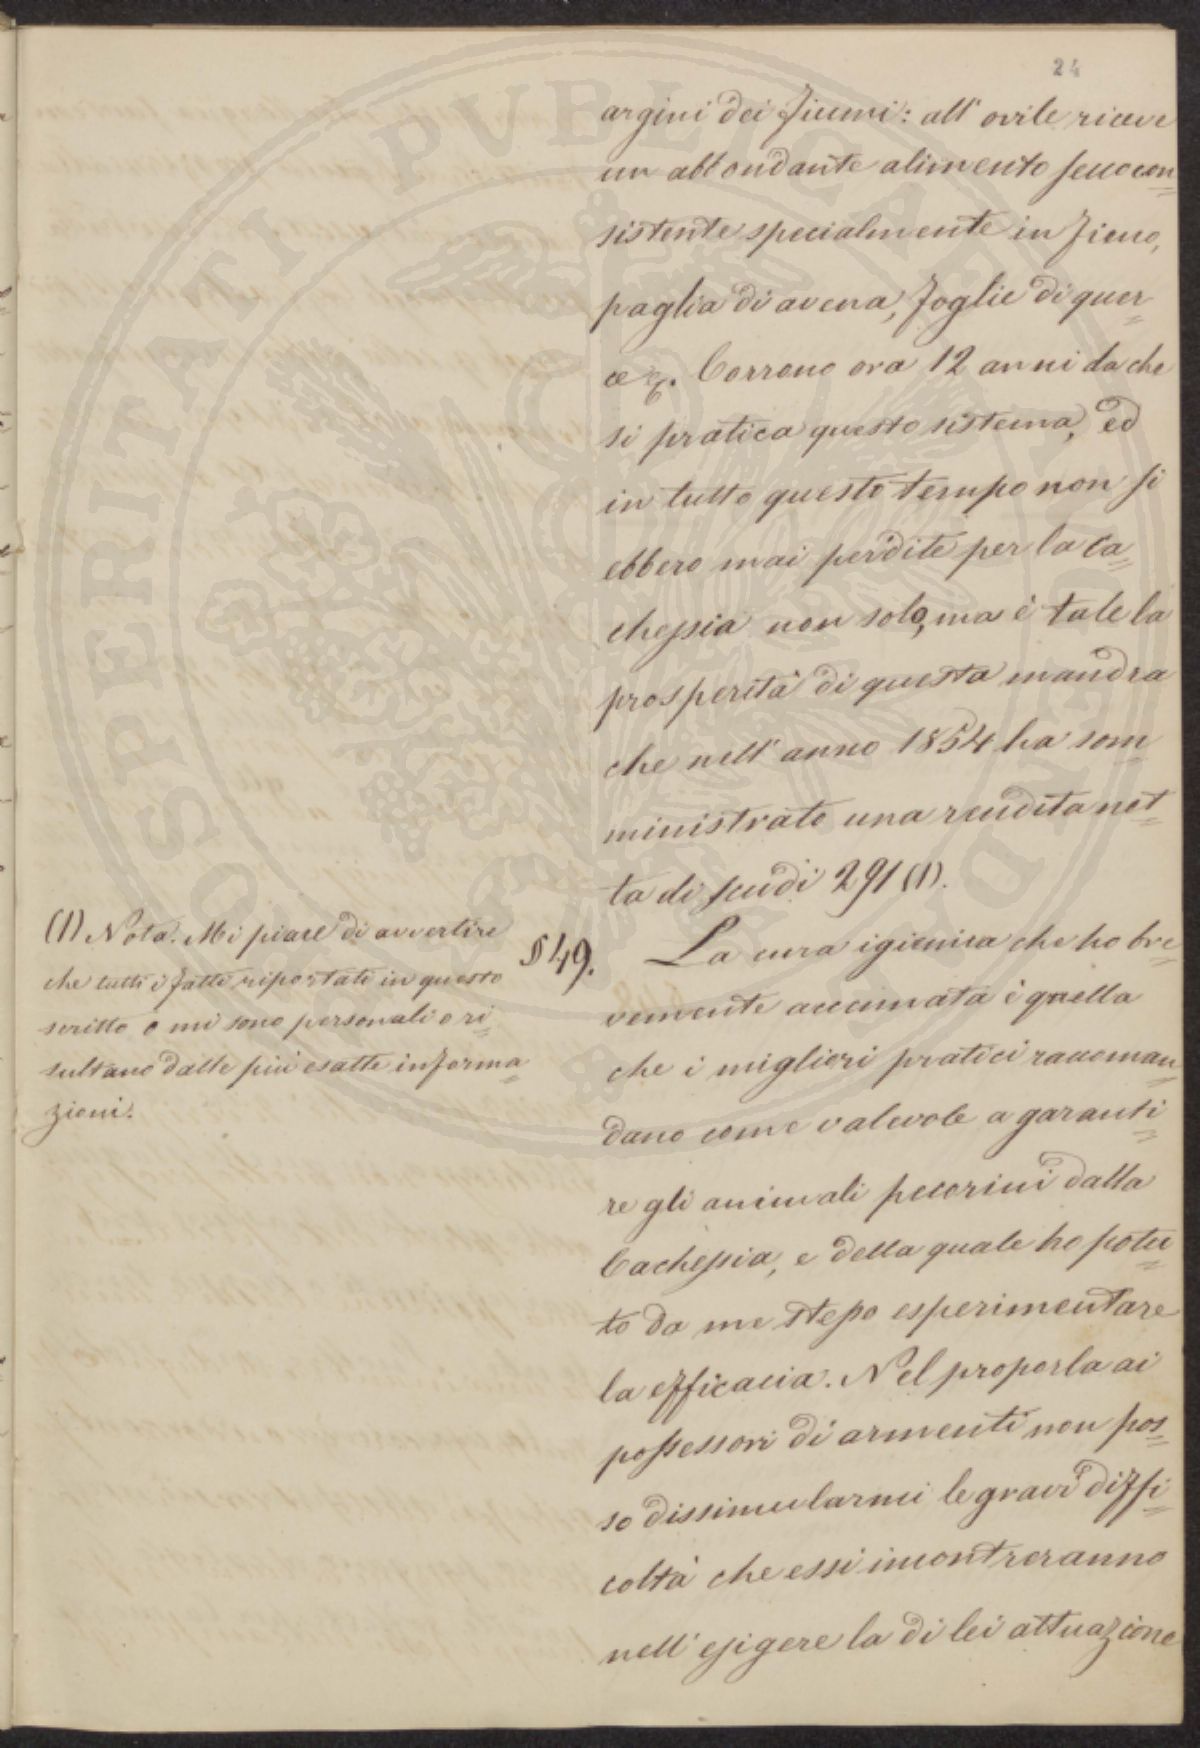 24
argini dei fiumi: all' ovile riceve
un abbondante alimento secco con=
sistente specialmente in fieno,
paglia di avena, foglie di quer=
ce &. Corrono ora 12 anni da che
si pratica questo sistema, ed
in tutto questo tempo non si
ebbero mai perdite per la Ca=
chessia non solo, ma è tale la
prosperità di questa mandra
che nell' anno 1854 ha som=
ministrato una rendita net=
ta di scudi 291 (1).
§ 49. La cura igienica che ho bre=
vemente accennata è quella
che i migliori pratici raccoman=
dano come valevole a garanti=
re gli animali pecorini dalla
Cachessia, e della quale ho potu=
to da me stesso esperimentare
la efficacia. Nel proporla ai
possessori di armenti non pos=
so dissimularmi le gravi diffi=
coltà che essi incontreranno
nell' esigere la di lei attuazione
(1) Nota. Mi piace di avvertire
che tutti i fatti riportati in questo
scritto o mi sono personali o ri=
sultano dalle più esatte informa=
zioni.
PROSPERITATI PVBLICAE AVGENDAE